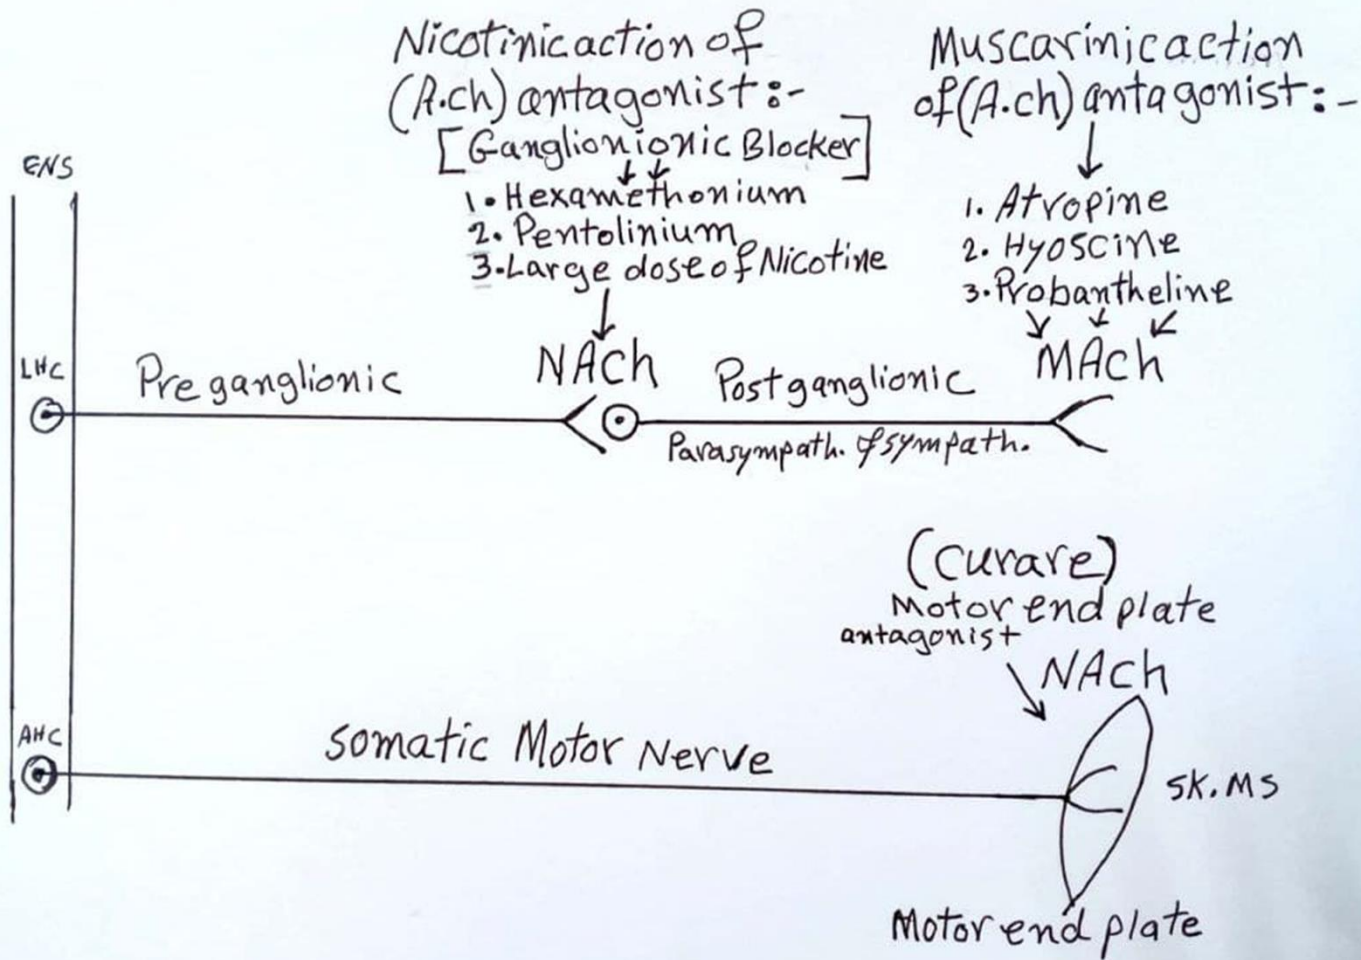 Nicotinic action of
(A.ch) antagonist :-
[Ganglionionic Blocker]
1. Hexamethonium
2. Pentolinium
3. Large dose of Nicotine
Muscarinic action
of (A.ch) antagonist : -
1. Atropine
2. Hyoscine
3. Probantheline
ENS
LHC
Preganglionic
NAch
Postganglionic
MAch
Parasympath. & sympath.
(Curare)
Motor end plate
antagonist
NAch
AHC
Somatic Motor Nerve
SK.MS
Motor end plate